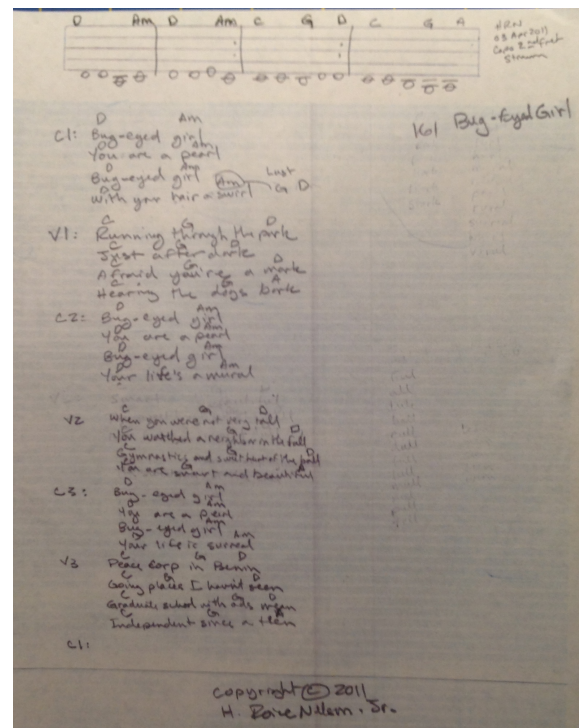 D Am D Am C G D C G A
HRN
03 Apr 2011
Capo 2nd fret
Strum
161 Bug-Eyed Girl
D Am
C1: Bug-eyed girl
D Am
You are a pearl
D Am
Bug-eyed girl
Last
D Am G D
With your hair a swirl
C G D
V1: Running through the park
C G D
Just after dark
C G D
Afraid you're a mark
C G A
Hearing the dogs bark
D Am
C2: Bug-eyed girl
D Am
You are a pearl
D Am
Bug-eyed girl
D Am
Your life's a mural
C G D
V2 When you were not very tall
C G D
You watched a neighbor in the fall
C G D
Gymnastics and out of the
C G A
You are smart and beautiful
D Am
C3: Bug-eyed girl
D Am
You are a pearl
D Am
Bug-eyed girl
D Am
Your life is surreal
C G D
V3 Peace Corp in Benin
C G D
Going places I haven't been
C G D
Graduate school with
C G A
Independent since a teen
C1:
Copyright © 2011
H. Nilsen, Jr.